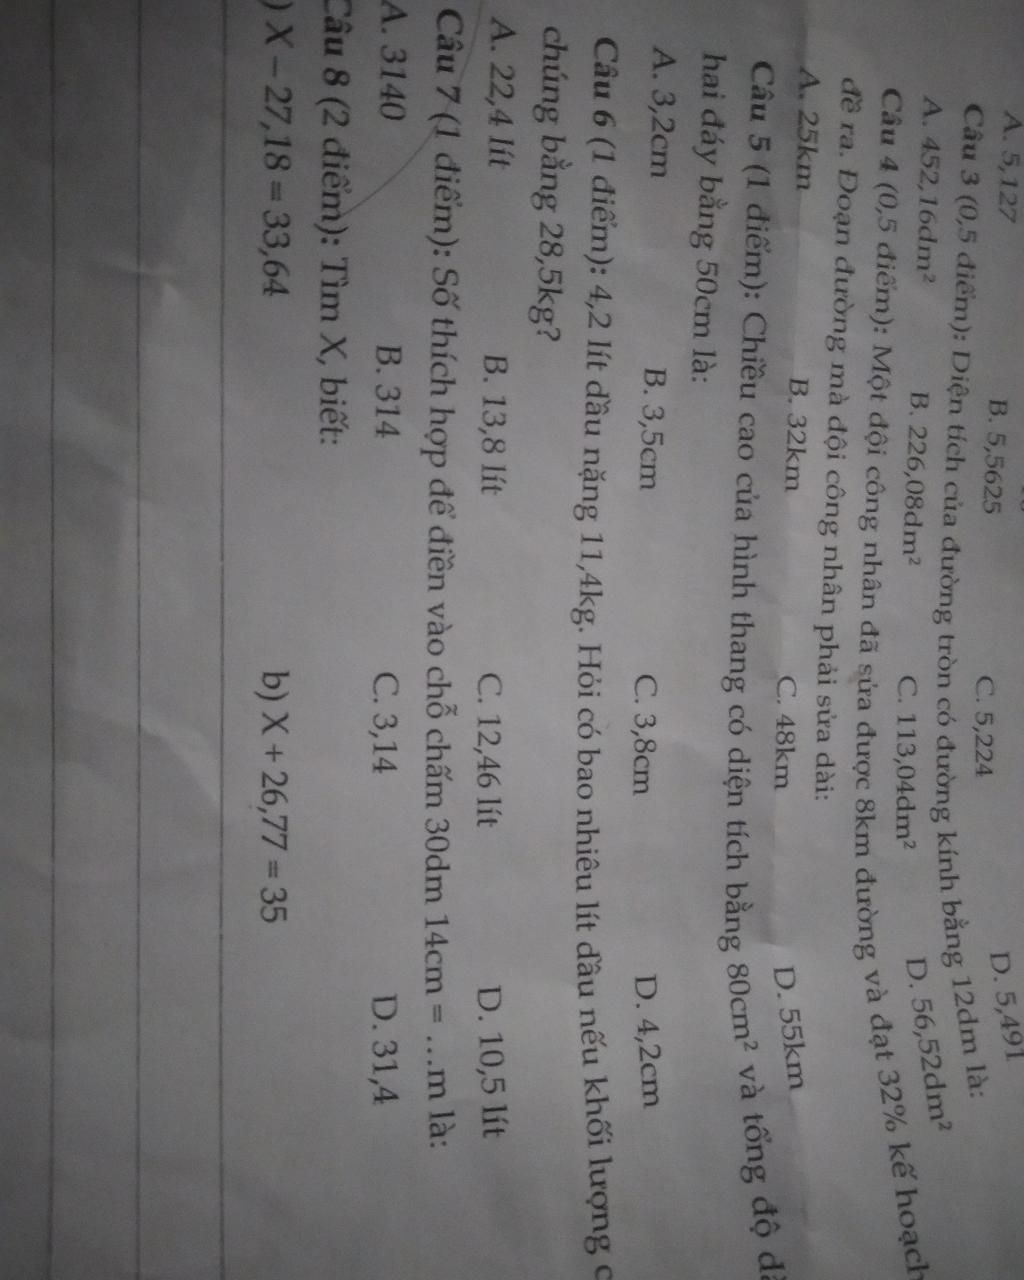 A. 5,127 B. 5,5625 C. 5,224 D. 5,491
Câu 3 (0,5 điểm): Diện tích của đường tròn có đường kính bằng 12dm là:
A. 452,16dm² B. 226,08dm² C. 113,04dm² D. 56,52dm²
Câu 4 (0,5 điểm): Một đội công nhân đã sửa được 8km đường và đạt 32% kế hoạch
đề ra. Đoạn đường mà đội công nhân phải sửa dài:
A. 25km B. 32km C. 48km D. 55km
Câu 5 (1 điểm): Chiều cao của hình thang có diện tích bằng 80cm² và tổng độ
hai đáy bằng 50cm là:
A. 3,2cm B. 3,5cm C. 3,8cm D. 4,2cm
Câu 6 (1 điểm): 4,2 lít dầu nặng 11,4kg. Hỏi có bao nhiêu lít dầu nếu khối lượng
chúng bằng 28,5kg?
A. 22,4 lít B. 13,8 lít C. 12,46 lít D. 10,5 lít
Câu 7 (1 điểm): Số thích hợp để điền vào chỗ chấm 30dm 14cm = …m là:
A. 3140 B. 314 C. 3,14 D. 31,4
Câu 8 (2 điểm): Tìm X, biết:
) X – 27,18 = 33,64 b) X + 26,77 = 35